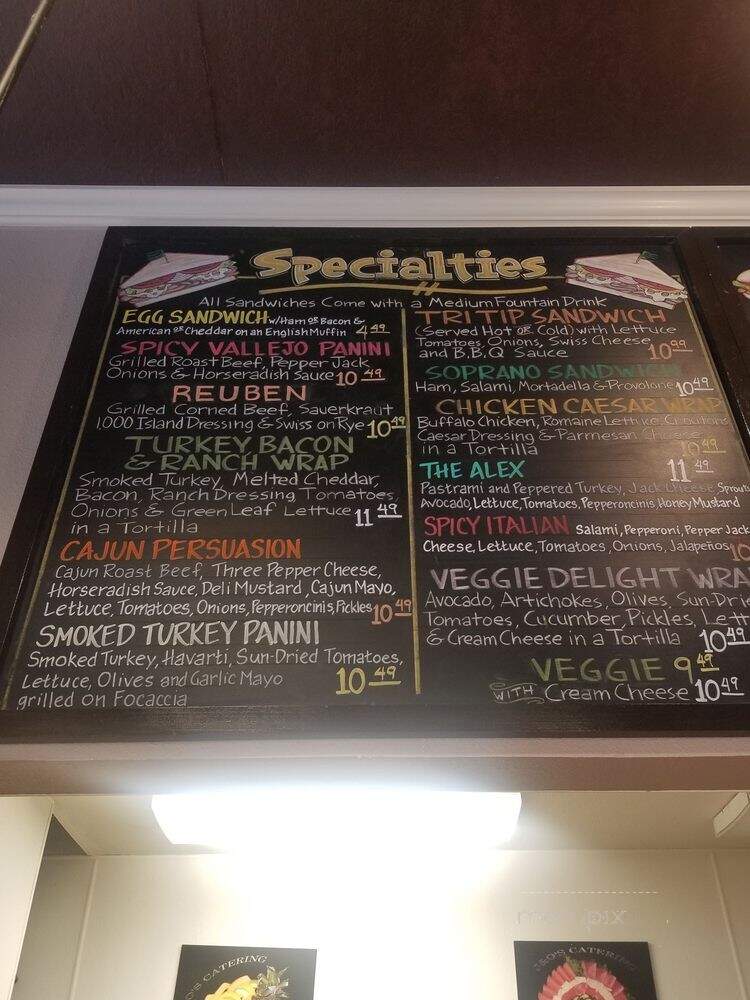 Specialties
All Sandwiches Come with a Medium Fountain Drink
EGG SANDWICH w/Ham OR Bacon &
American OR Cheddar on an English Muffin 4 49
SPICY VALLEJO PANINI
Grilled Roast Beef, Pepper Jack
Onions & Horseradish Sauce 10 49
REUBEN
Grilled Corned Beef, Sauerkraut
1,000 Island Dressing & Swiss on Rye 10 49
TURKEY, BACON
& RANCH WRAP
Smoked Turkey, Melted Cheddar,
Bacon, Ranch Dressing, Tomatoes,
Onions & Green Leaf Lettuce 11 49
in a Tortilla
CAJUN PERSUASION
Cajun Roast Beef, Three Pepper Cheese,
Horseradish Sauce, Deli Mustard, Cajun Mayo,
Lettuce, Tomatoes, Onions, Pepperoncinis, Pickles 10 49
SMOKED TURKEY PANINI
Smoked Turkey, Havarti, Sun-Dried Tomatoes,
Lettuce, Olives and Garlic Mayo 10 49
grilled on Focaccia
TRI TIP SANDWICH
(Served Hot OR Cold) with Lettuce
Tomatoes, Onions, Swiss Cheese
and B.B.Q Sauce 10 99
SOPRANO SANDWICH
Ham, Salami, Mortadella & Provolone 10 49
CHICKEN CAESAR WRAP
Buffalo Chicken, Romaine Lettuce, Croutons
Caesar Dressing & Parmesan Cheese
in a Tortilla 10 49
THE ALEX 11 49
Pastrami and Peppered Turkey, Jack Cheese Sprouts
Avocado, Lettuce, Tomatoes, Pepperoncinis, Honey Mustard
SPICY ITALIAN Salami, Pepperoni, Pepper Jack
Cheese, Lettuce, Tomatoes, Onions, Jalapeños 10
VEGGIE DELIGHT WRA
Avocado, Artichokes, Olives, Sun-Drie
Tomatoes, Cucumber, Pickles, Lett
& Cream Cheese in a Tortilla 10 49
VEGGIE 9 49
WITH Cream Cheese 10 49
CATERING
CATERING